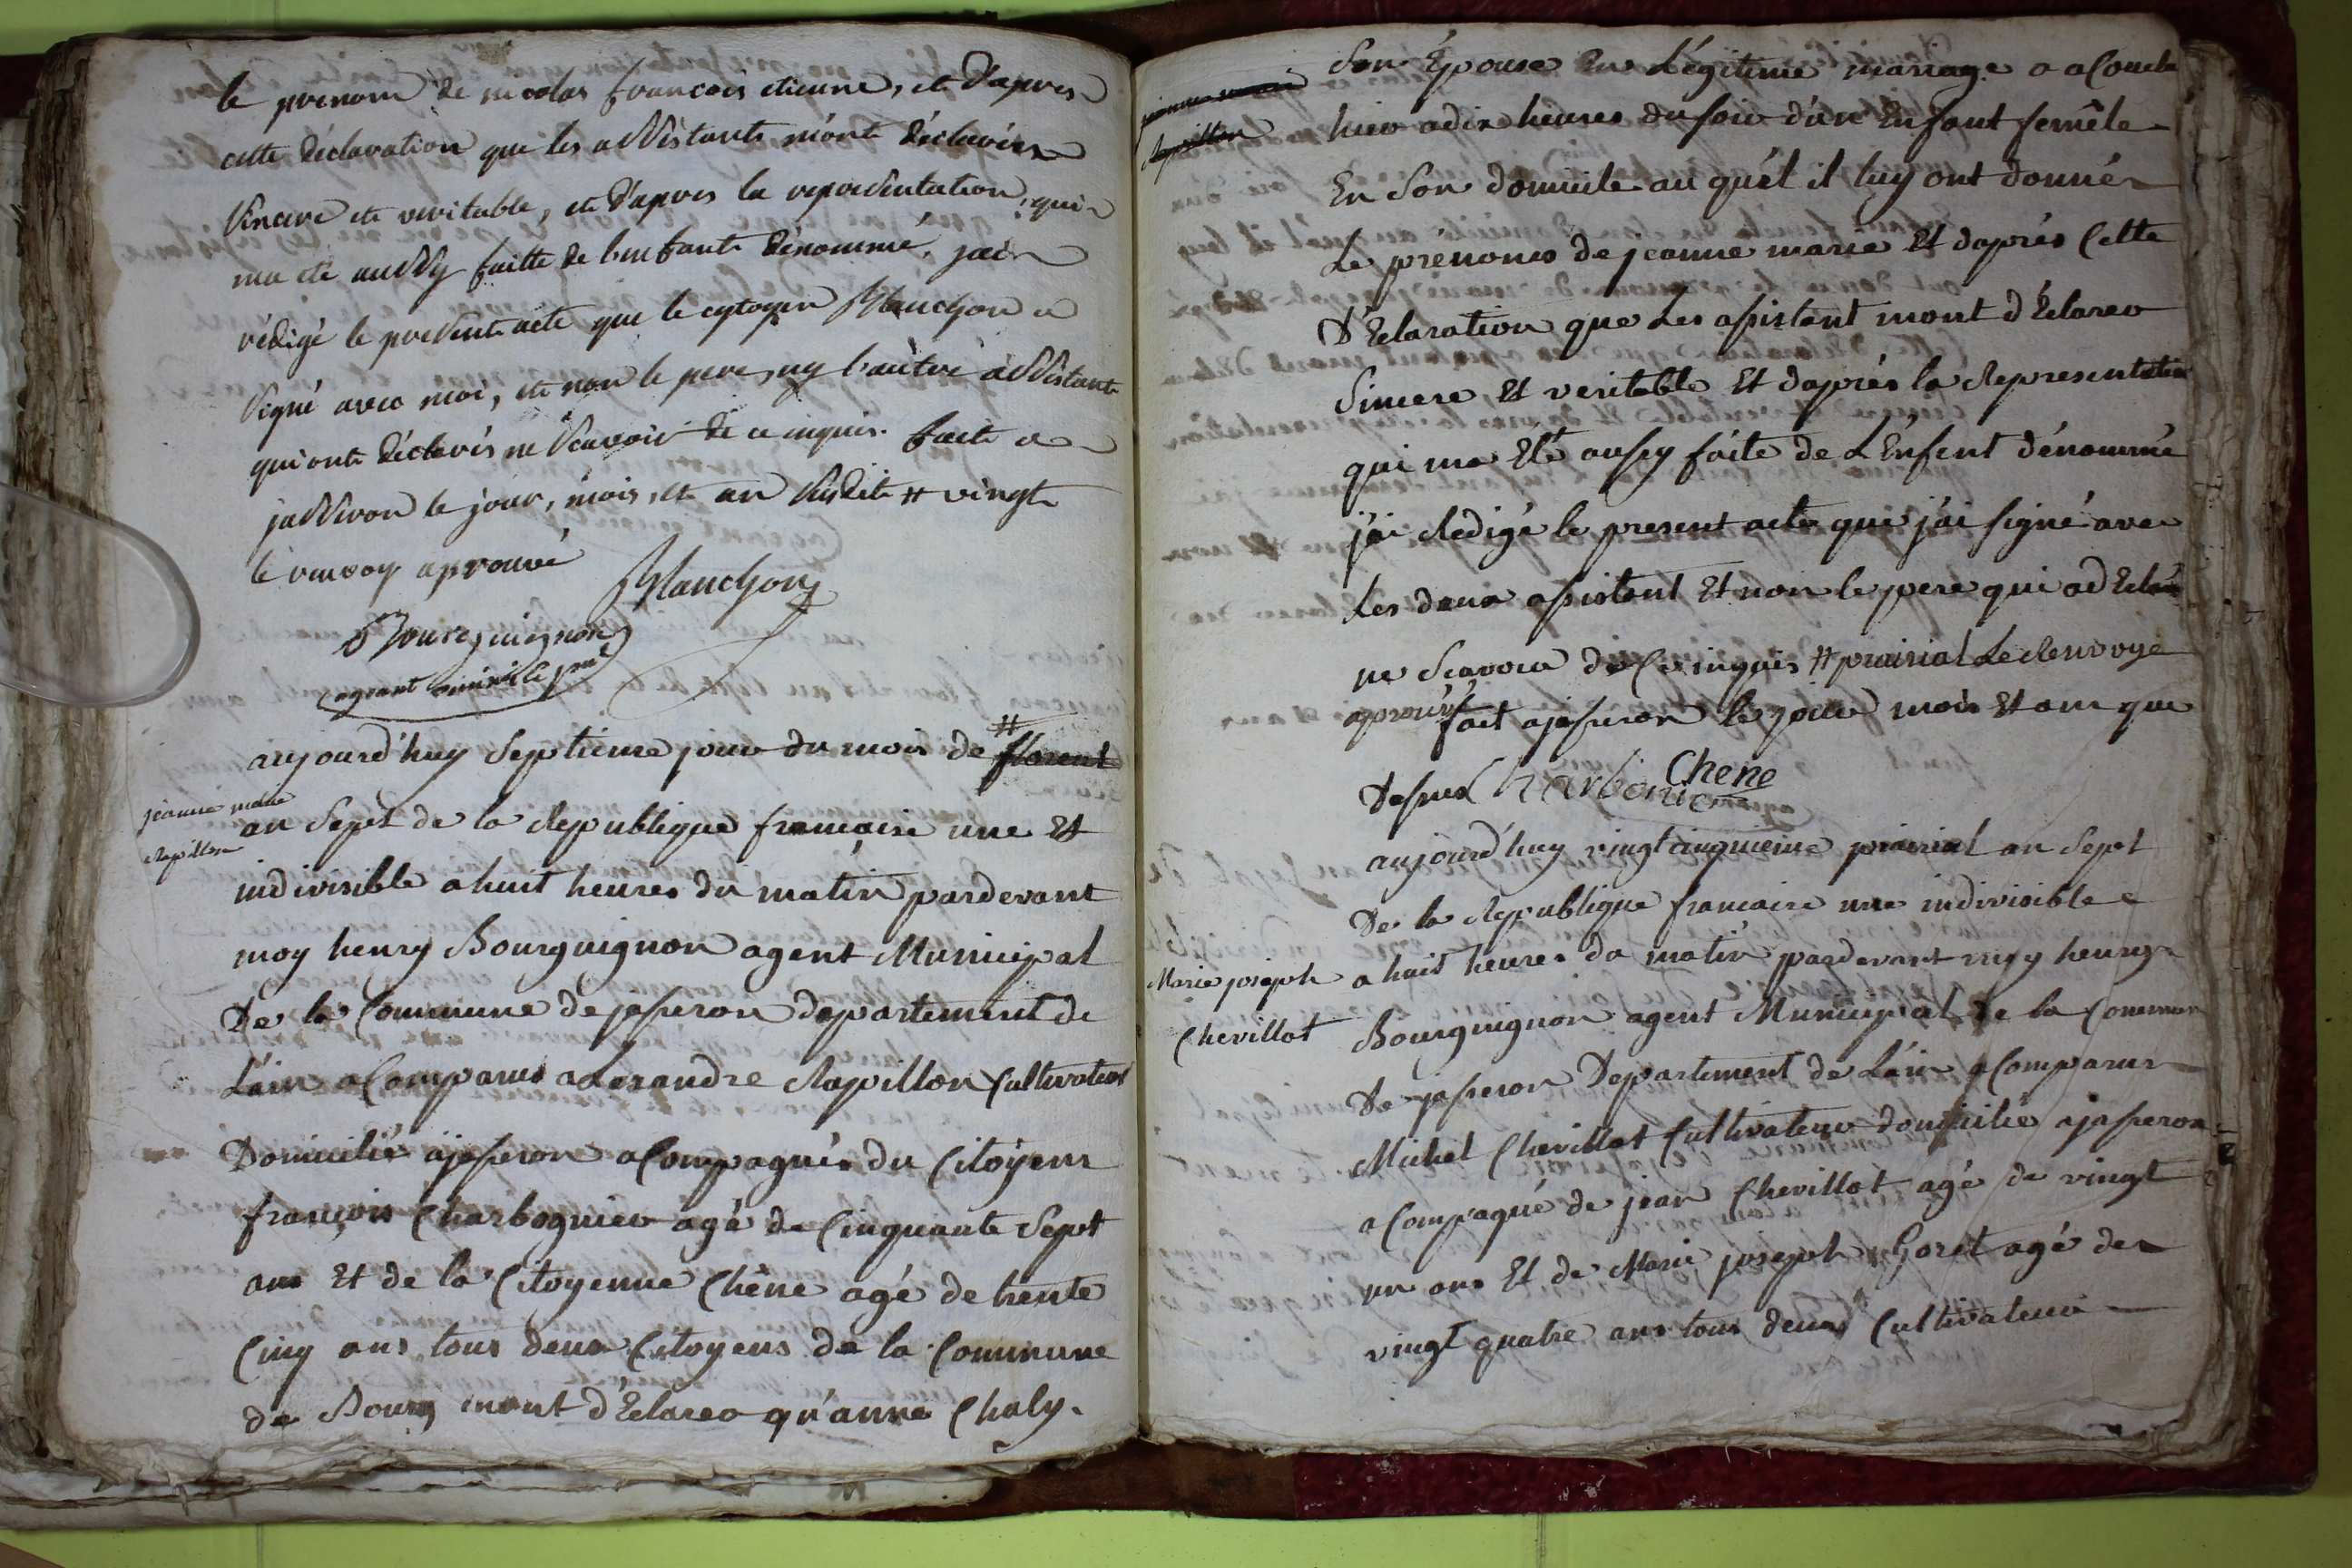 le prenom de nicolas francois etienne, et d'apres
cette déclaration que les assistants m'ont déclarées
sincere et veritable, et d'apres la representation, qui
ma été aussy faitte de l'enfant dénommé, j'ai
rédigé le present acte que le cytoyen Blanchon a
signé avec moi, et non le pere, ny l'autre assistant
qui ont déclarés ne scavoir de ce inquis. fait a
jasseron le jour, mois, et an susdit # vingt
le renvoy aprouvé
Blanchon
Bourguignon
ageant
aujourd'huy septieme jour du mois de # floreal
jeanne marie
rapillon
an sept de la Republique française une Et
indivisible a huit heures du matin pardevant
moy henry Bourguignon agent Municipal
De la Commune de jasseron departement de
L'ain a Comparus alexandre Rapillon Cultivateur
Domicilié a jasseron acompagnés du Citoyens
françois Charbognier agé de Cinquante Sept
ans Et de la Citoyenne Chêne agé de trente
Cinq ans tous deux Citoyens de la Commune
de Bourg mont d'Eclareo qu'anne Chaly
rapillon
Son Épouse En Légitime mariage a acouche
hier a dix heures du soir d'un Enfant femêle
En Son domicile au quél il luy ont donnér
Le prénoms de jeanne marie Et daprés Cette
D'Eclaration que Les assistant mont d'Eclareo
Sincere Et veritable Et daprés la Representation
qui ma Eté aussy faite de L'Enfent dénommé
j'ai Redigé le present acte que j'ai signé avec
Les deux assistant Et non le pere qui a d'Eclaré
ne Scavoir de Ce inquis # prairial Le Renvoye
aprouvé fait a jasseron le jour mois Et ans que
Dessus Charbonier Chene
aujourd'huy vingt cinquieme prairial an Sept
De la Republique francaise une indivisible
Marie joseph
Chevillot
a huit heures du matin pardevant moy henry
Bourguignon agent Municipal de la Commune
De jasseron Departement de L'ain a Comparus
Michel Chevillot Cultivateur domicilié a jasseron
a Compagné de jean Chevillot agé de vingt
un ans Et de Marie joseph Goret agé de
vingt quatre ans tous deux Cultivateur